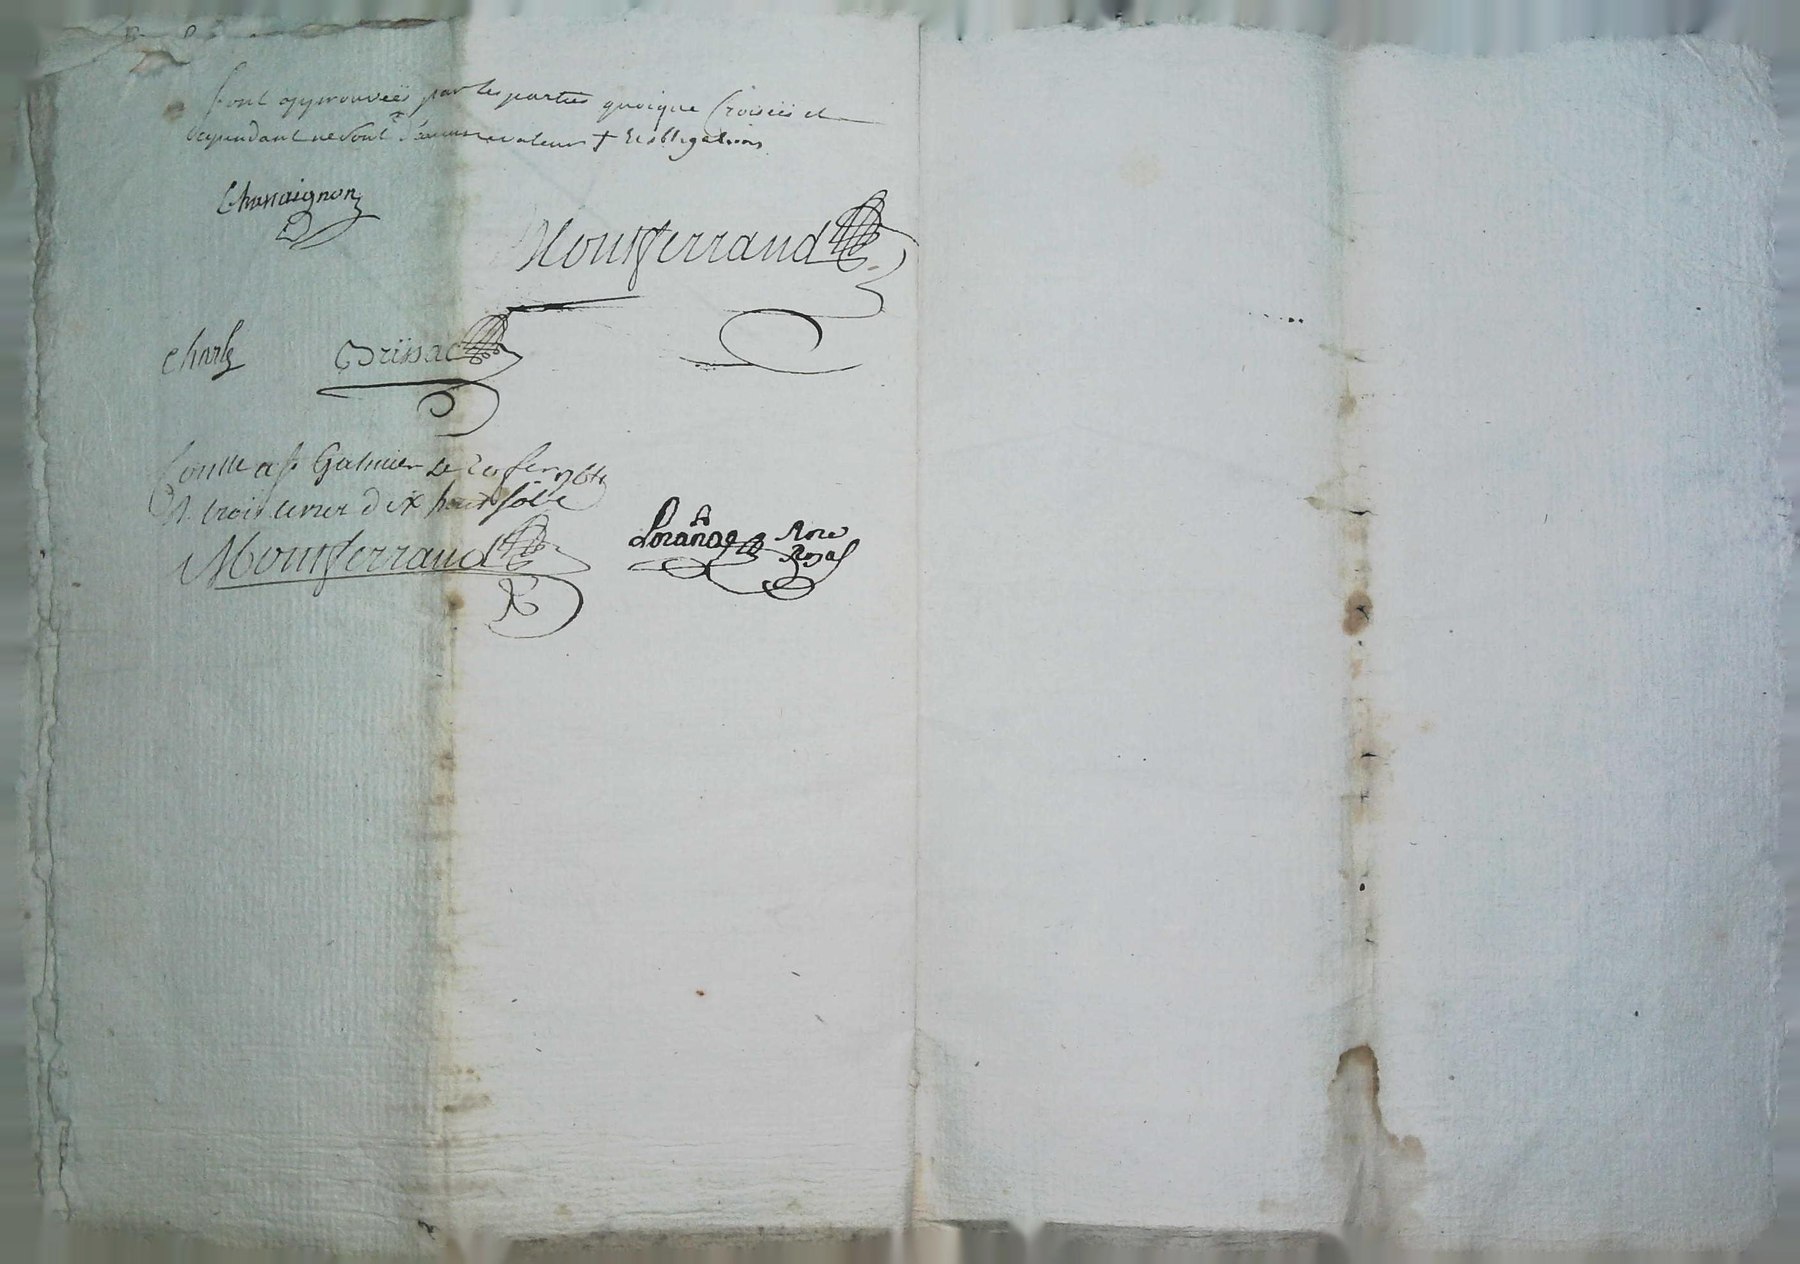 sont approuvées par les parties quoique Croisées et
cependant ne sont d'aucune valeur + Et obligations
Chassaignon
Monsferrand
Charle Brissac
a st Galmier Le 20
trois livres dix huit sols
Monsferrand
Lorange